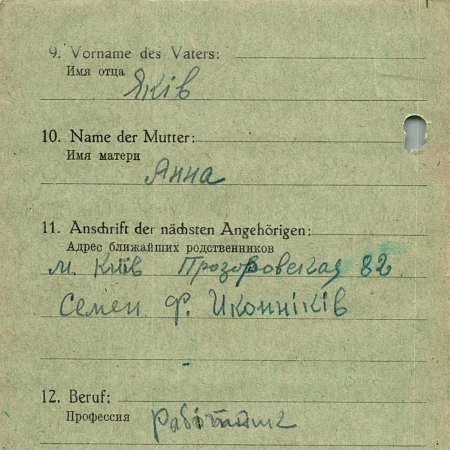 9. Vorname des Vaters:
Имя отца
Яків
10. Name der Mutter:
Имя матери
Анна
11. Anschrift der nächsten Angehörigen:
Адрес ближайших родственников
м. Київ Прозоровская 82
Семен Ф. Иконніків
12. Beruf:
Профессия